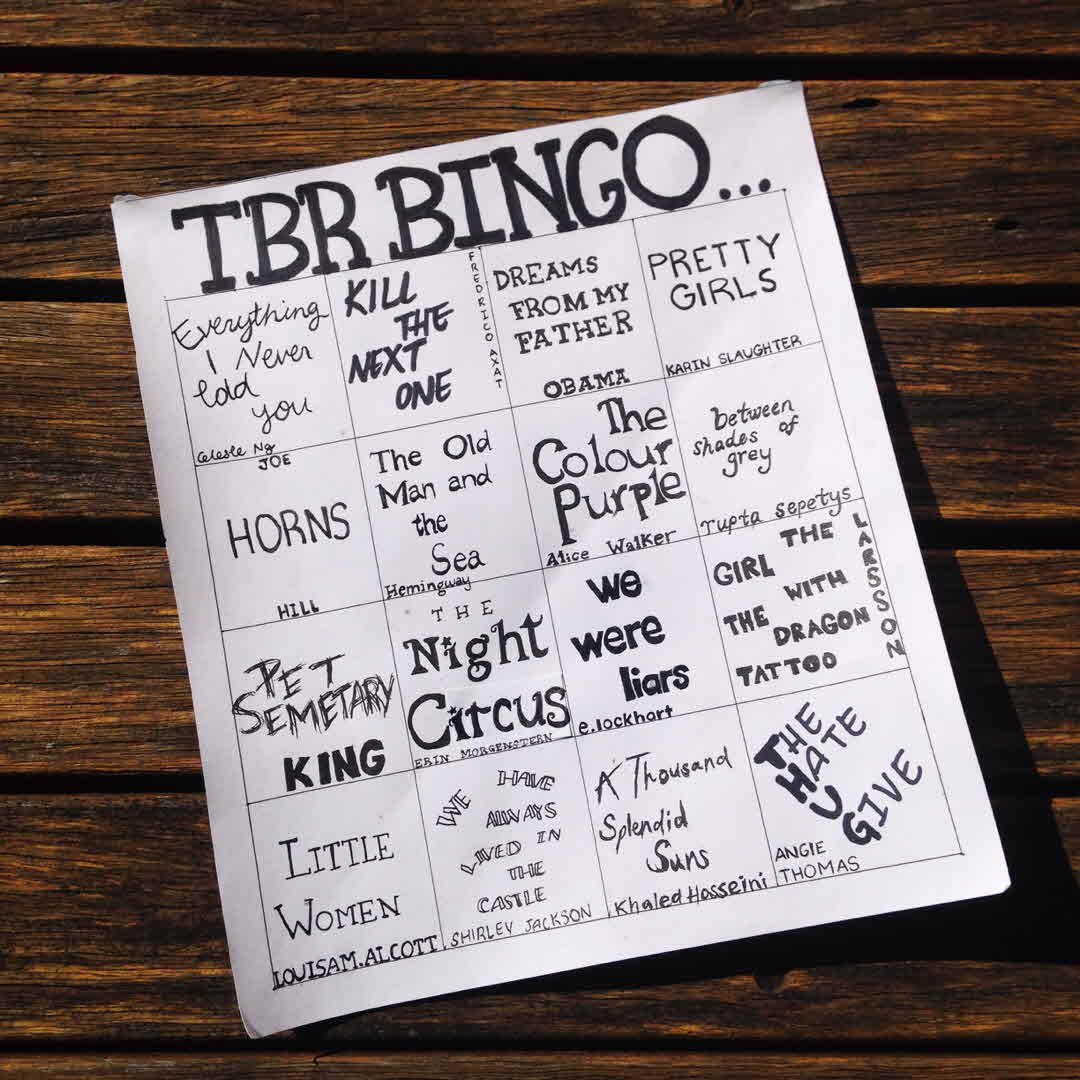 TBR BINGO...
Everything
I Never
told
you
Celeste Ng
KILL
THE
NEXT
ONE
FREDRICO AXAT
DREAMS
FROM MY
FATHER
OBAMA
PRETTY
GIRLS
KARIN SLAUGHTER
JOE
HORNS
HILL
The Old
Man and
the
Sea
Hemingway
The
Colour
Purple
Alice Walker
between
shades of
grey
rupta sepetys
PET
SEMETARY
KING
THE
Night
Circus
ERIN MORGENSTERN
we
were
liars
e.lockhart
THE
GIRL
WITH
THE
DRAGON
TATTOO
LARSSON
LITTLE
WOMEN
LOUISA M. ALCOTT
WE HAVE
ALWAYS
LIVED IN
THE
CASTLE
SHIRLEY JACKSON
A Thousand
Splendid
Suns
Khaled Hosseini
THE
HATE
U
GIVE
ANGIE
THOMAS